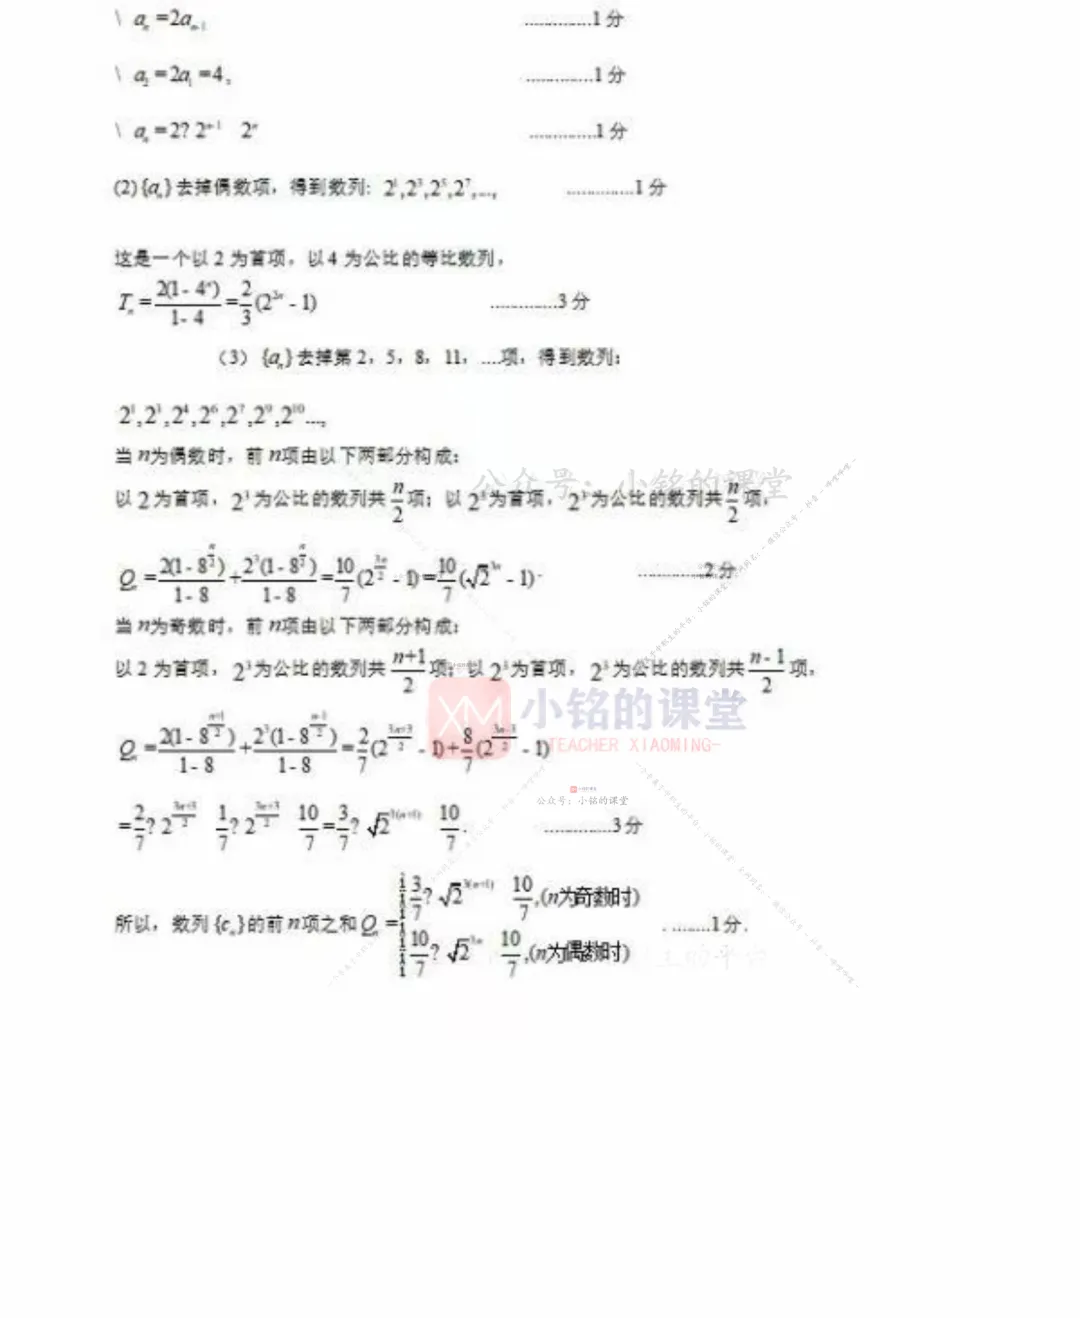 \ aₙ=2aₙ₋₁ ..............1分
\ a₂=2a₁=4。 ..............1分
\ aₙ=2? 2ⁿ⁻¹ 2ⁿ ..............1分
(2){aₙ}去掉偶数项，得到数列: 2¹,2³,2⁵,2⁷,..., ..............1分
这是一个以2为首项，以4为公比的等比数列，
Tₙ=2(1-4ⁿ)/(1-4)=2/3(2²ⁿ-1) ..............3分
（3）{aₙ}去掉第2，5，8，11，....项，得到数列：
2¹,2³,2⁴,2⁶,2⁷,2⁹,2¹⁰...,
当n为偶数时，前n项由以下两部分构成：
公众号：小铭的课堂
以2为首项，2³为公比的数列共n/2项；以2³为首项，2³为公比的数列共n/2项，
Qₙ=2(1-8^(n/2))/(1-8)+2³(1-8^(n/2))/(1-8)=10/7(2^(3n/2)-1)=10/7(√2³ⁿ-1). ..............2分
当n为奇数时，前n项由以下两部分构成：
以2为首项，2³为公比的数列共(n+1)/2项；以2³为首项，2³为公比的数列共(n-1)/2项，
XM 小铭的课堂
TEACHER XIAOMING-
Qₙ=2(1-8^((n+1)/2))/(1-8)+2³(1-8^((n-1)/2))/(1-8)=2/7(2^((3n+3)/2)-1)+8/7(2^((3n-3)/2)-1)
公众号：小铭的课堂
=2/7? 2^((3n+3)/2) 1/7? 2^((3n+3)/2) 10/7=3/7? √2^(3(n+1)) 10/7. ..............3分
所以，数列{cₙ}的前n项之和Qₙ= 3/7? √2^(3(n+1)) 10/7,(n为奇数时) ..........1分.
10/7? √2³ⁿ 10/7,(n为偶数时)
的平台